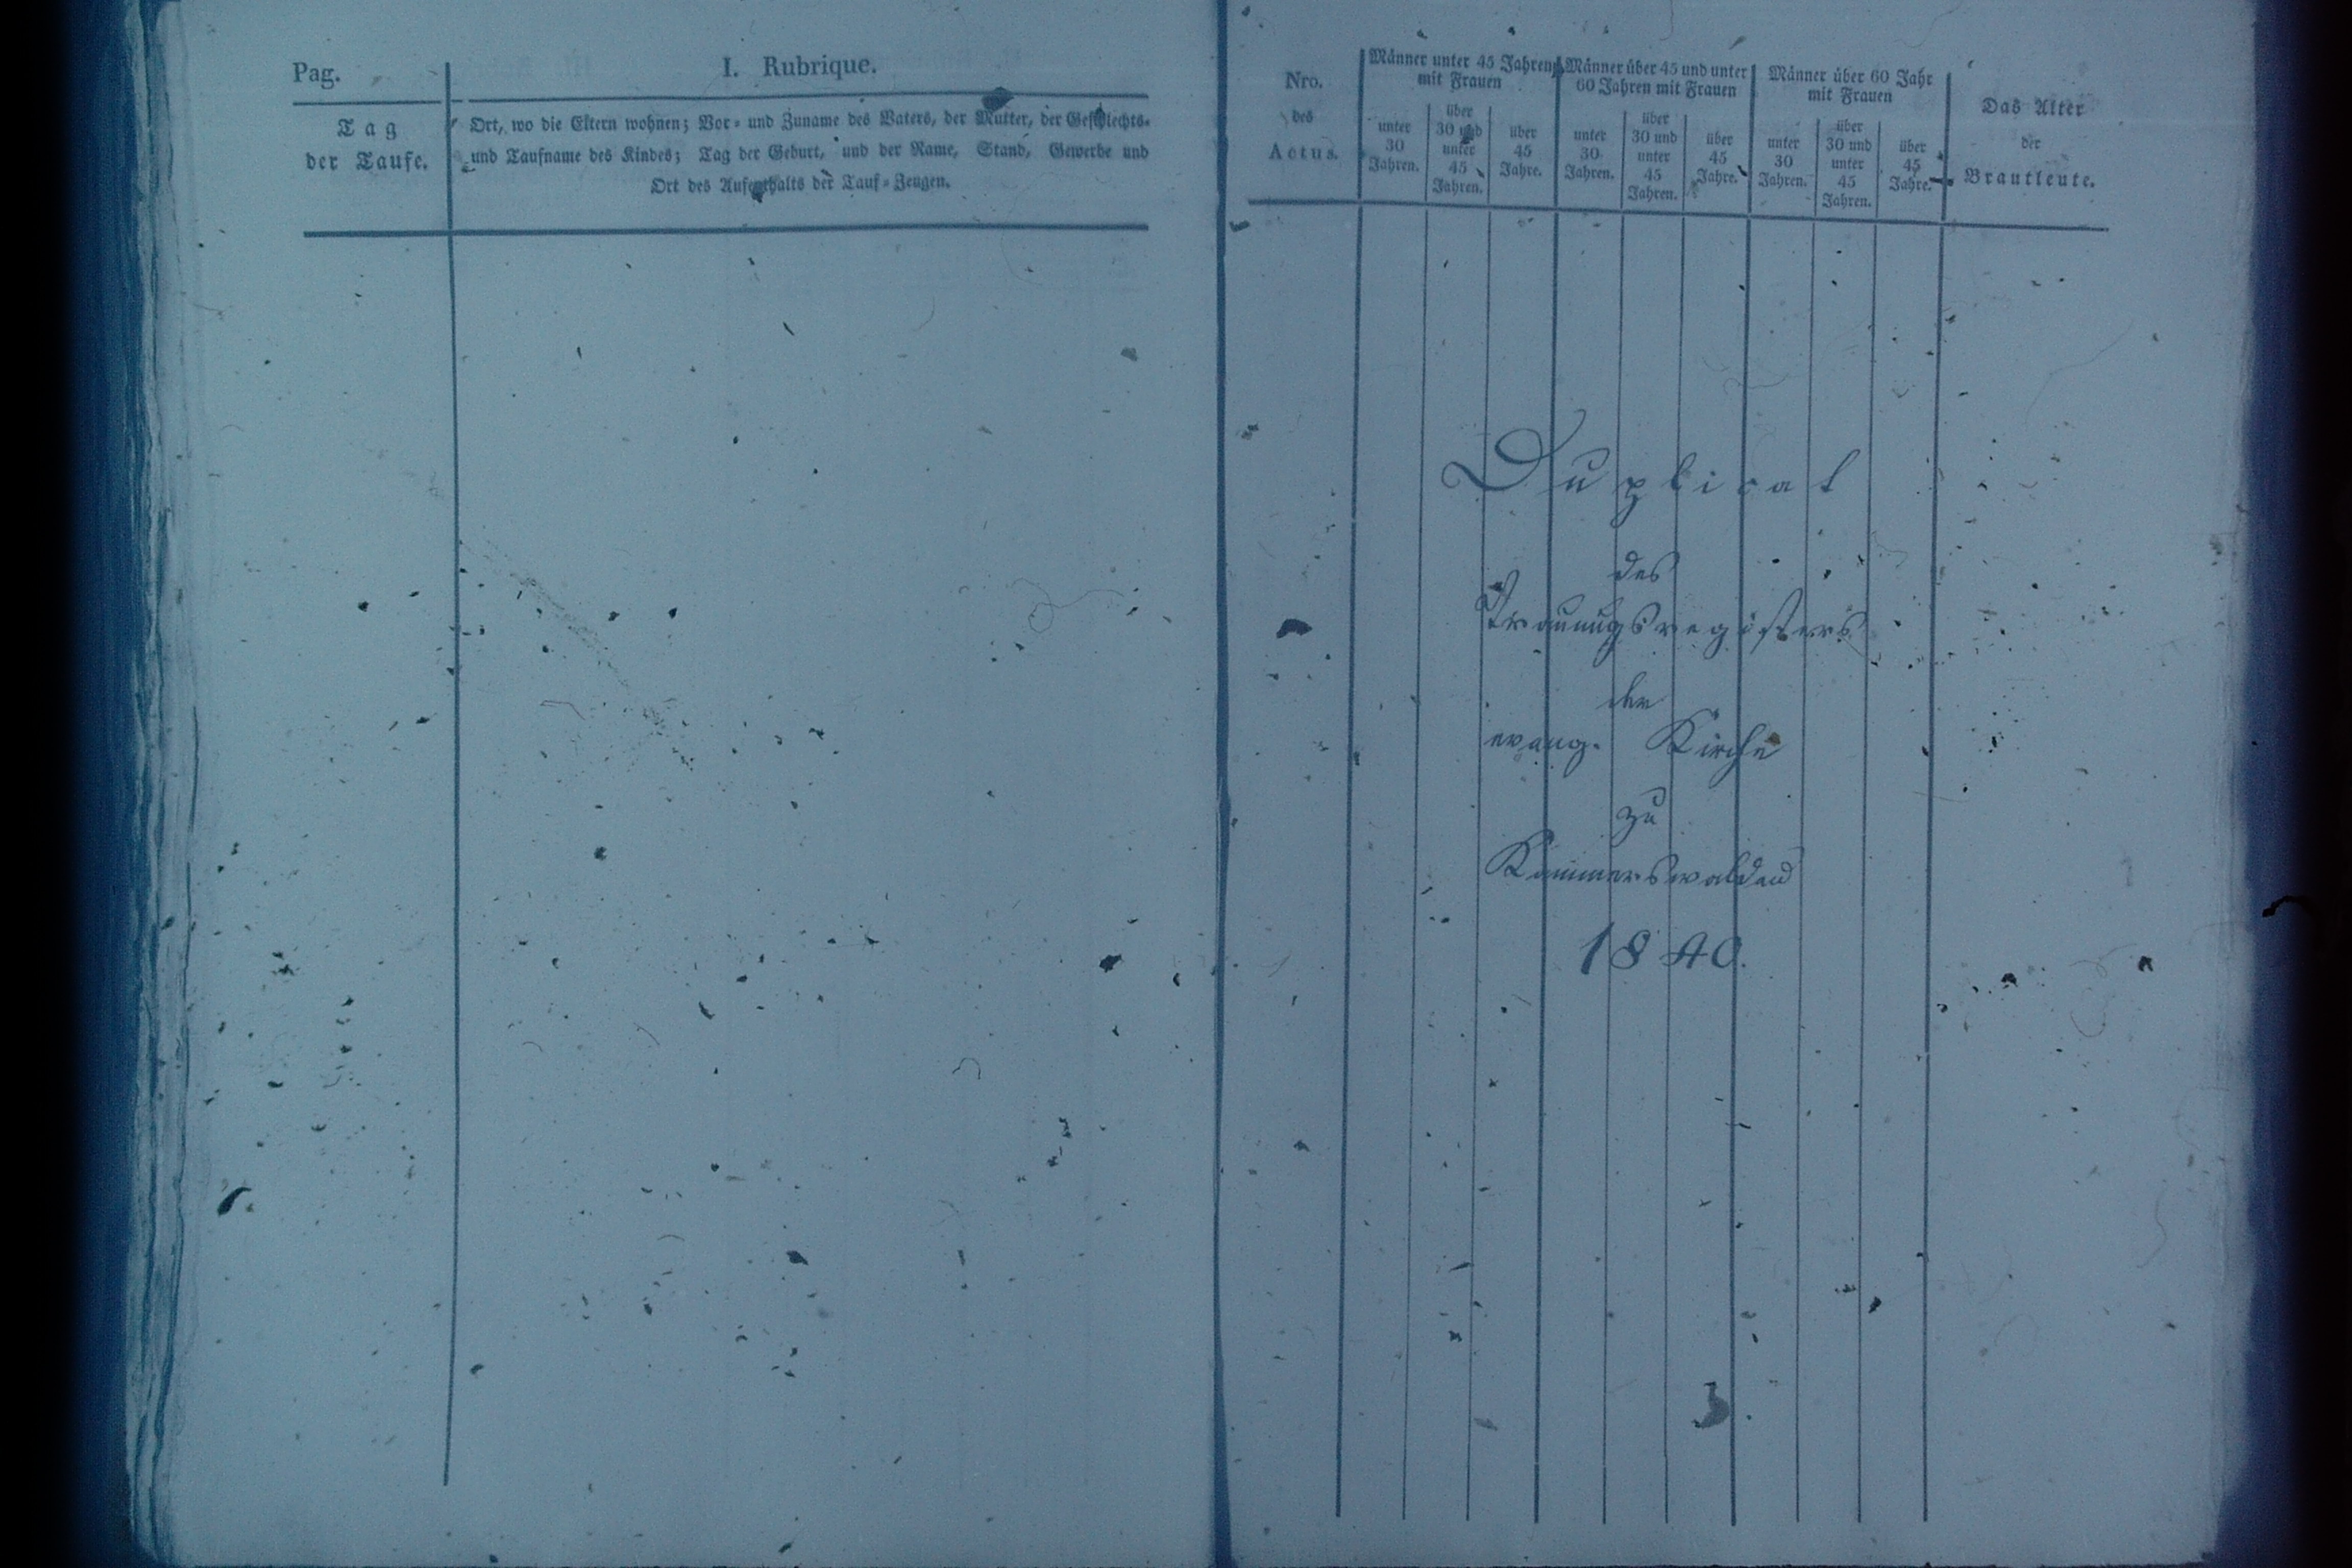 Pag.
I. Rubrique.
Tag
der Taufe.
Ort, wo die Eltern wohnen; Vor- und Zuname des Vaters, der Mutter, der Geschlechts-
und Taufname des Kindes; Tag der Geburt, und der Name, Stand, Gewerbe und
Ort des Aufenthalts der Tauf-Zeugen.
Nro.
des
Actus.
Männer unter 45 Jahren
mit Frauen
unter
30
Jahren.
über
30 und
unter
45
Jahren.
über
45
Jahre.
Männer über 45 und unter
60 Jahren mit Frauen
unter
30
Jahren.
über
30 und
unter
45
Jahren.
über
45
Jahre.
Männer über 60 Jahr
mit Frauen
unter
30
Jahren.
über
30 und
unter
45
Jahren.
über
45
Jahre.
Das Alter
der
Brautleute.
Duplicat
des
Trauungsregisters
der
evang. Kirche
zu
Kammerswaldau
1840.